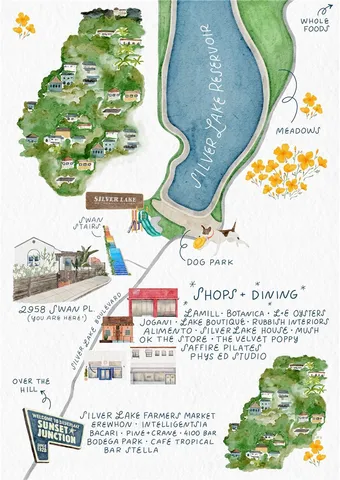 WHOLE
FOODS
SILVER LAKE RESERVOIR
MEADOWS
SILVER LAKE
SWAN
STAIRS
DOG PARK
2958 SWAN PL.
(YOU ARE HERE!)
SILVER LAKE BOULEVARD
*SHOPS + DINING*
LAMILL · BOTANICA · L+E OYSTERS
JOGANI · LAKE BOUTIQUE · RUBBISH INTERIORS
ALIMENTO · SILVERLAKE HOUSE · MUSH
OK THE STORE · THE VELVET POPPY
SAFFIRE PILATES
PHYS ED STUDIO
OVER THE
HILL
WELCOME TO SILVERLAKE
SUNSET
JUNCTION
SILVER LAKE FARMERS MARKET
EREWHON · INTELLIGENTSIA
BACARI · PINE+CRANE · 4100 BAR
BODEGA PARK · CAFE TROPICAL
BAR STELLA